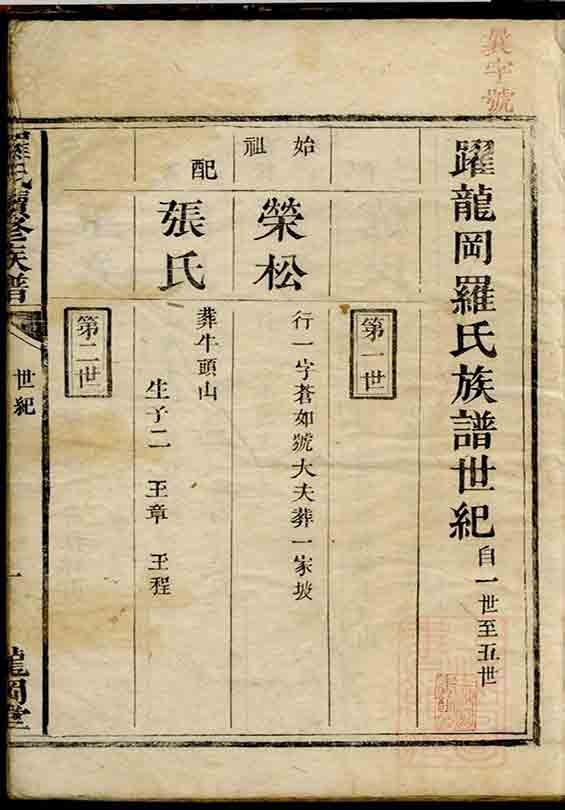 字號
躍龍岡羅氏族譜世紀 自一世至五世
第一世
始祖 榮松 行一字蒼如號大夫葬一家坡
配 張氏 葬牛頭山
生子二 王章 王程
第二世
羅氏續修族譜
世紀
一
龍岡堂